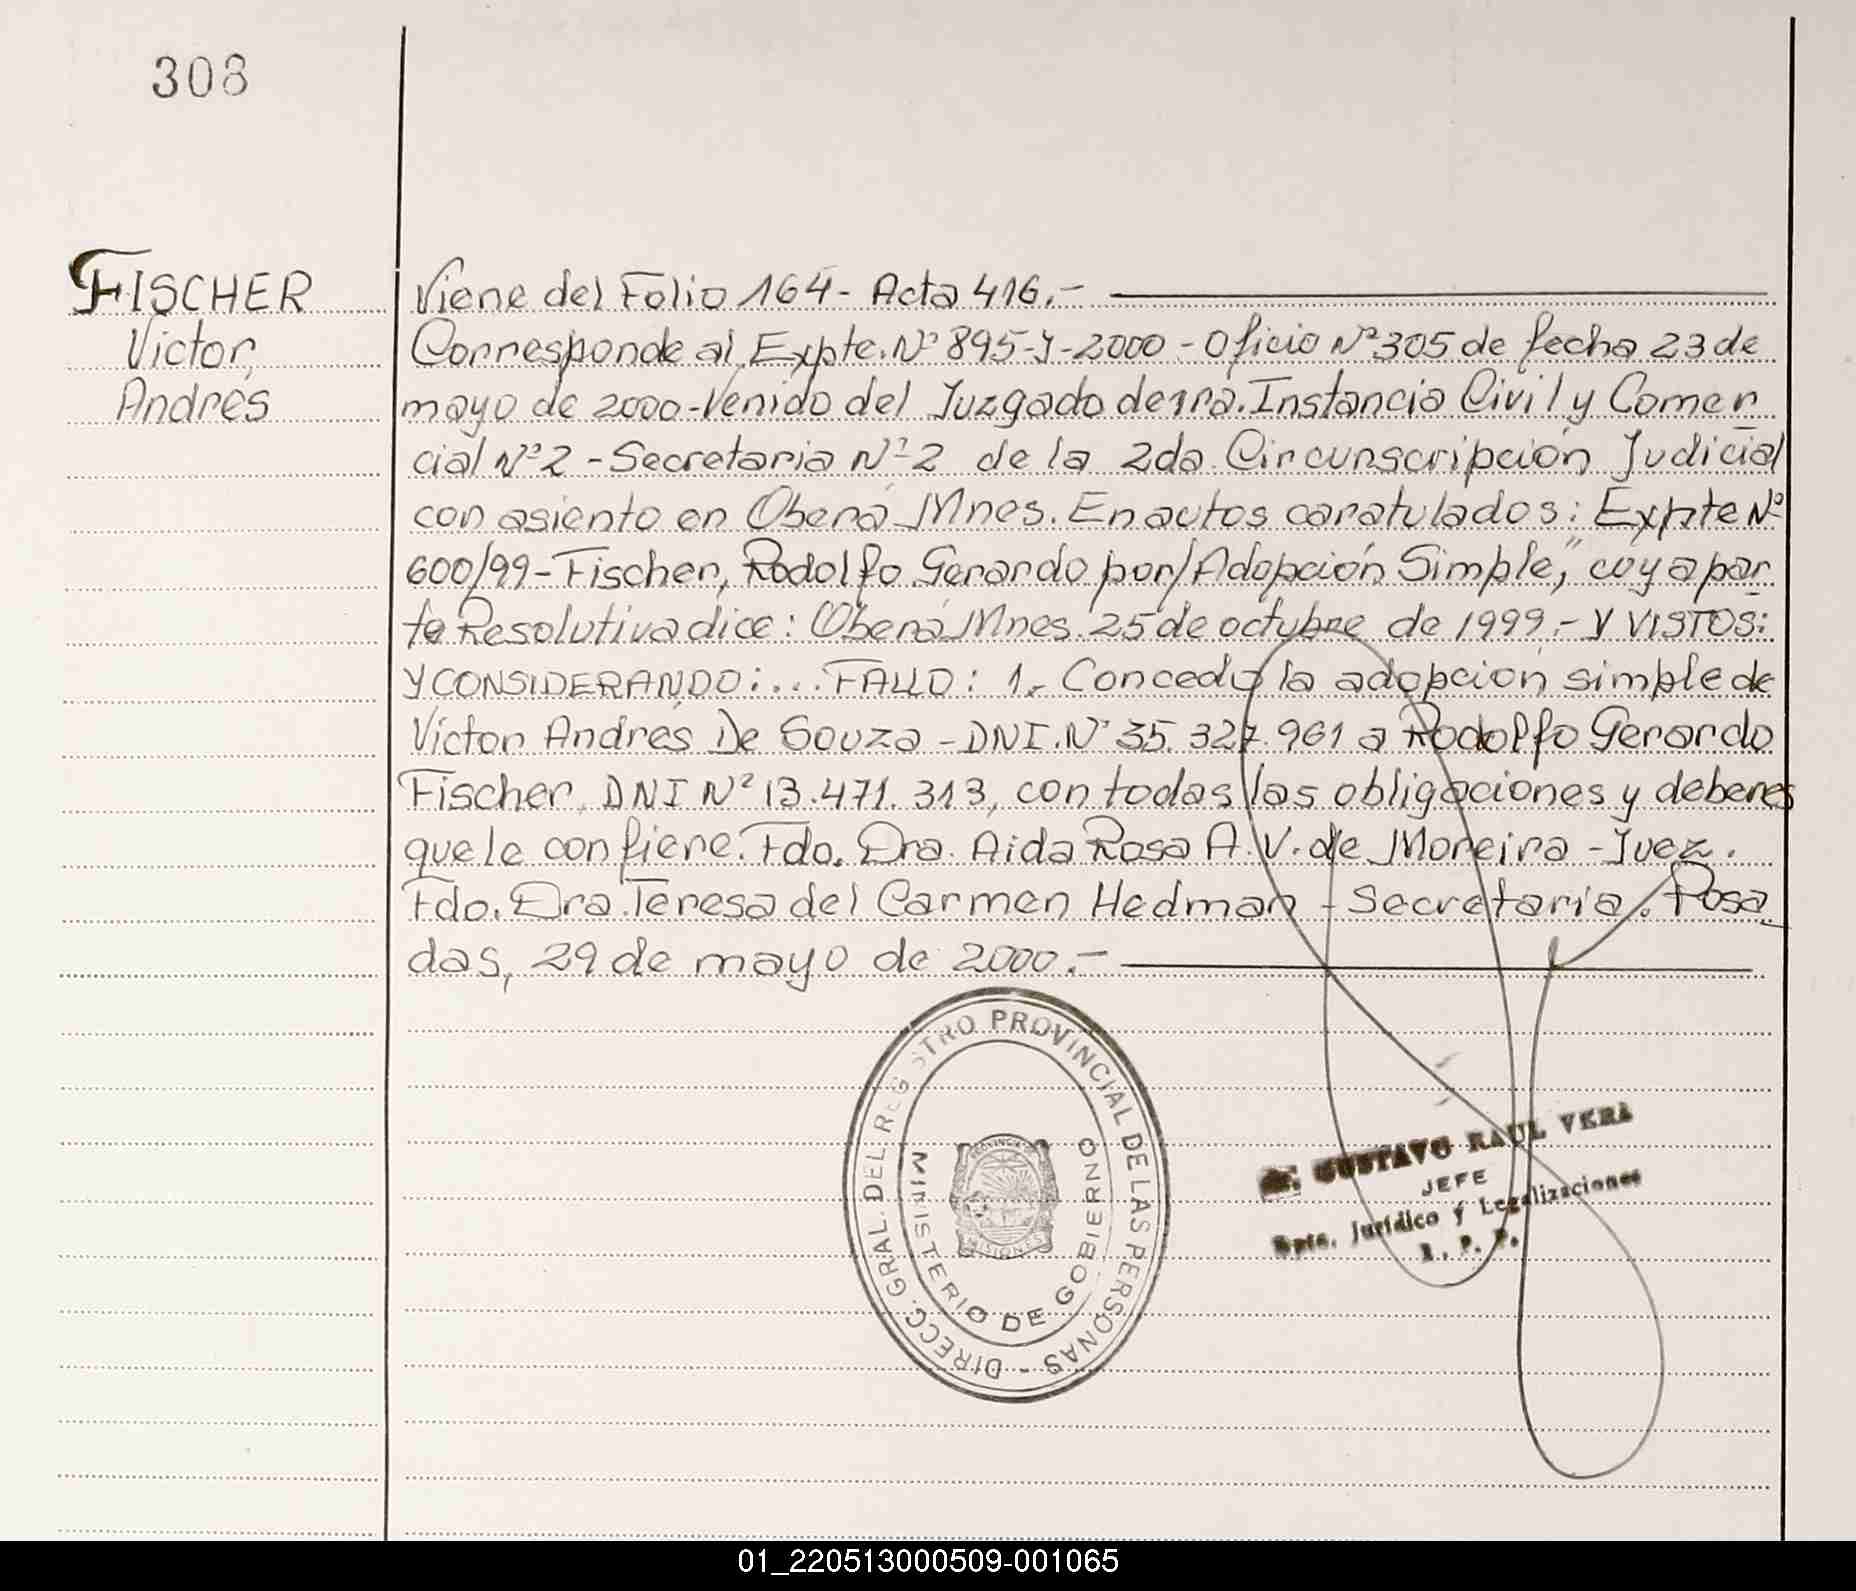 308
FISCHER
Victor
Andrés
Viene del Folio 164- Acta 416.-
Corresponde al Expte. Nº 895-Y-2000 - Oficio Nº 305 de fecha 23 de
mayo de 2000-Venido del Juzgado de 1ra. Instancia Civil y Comer
cial Nº 2 - Secretaria Nº 2 de la 2da. Circunscripción Judicial
con asiento en Oberá Mnes. En autos caratulados: Expte Nº
600/99-Fischer, Rodolfo Gerardo por/Adopción Simple," cuya par
te Resolutiva dice: Oberá Mnes. 25 de octubre de 1999.- Y VISTOS:
Y CONSIDERANDO:... FALLO: 1. Concedo la adopción simple de
Victor Andrés De Souza - DNI. Nº 35.327.961 a Rodolfo Gerardo
Fischer, DNI Nº 13.471.313, con todas las obligaciones y deberes
que le confiere. Fdo. Dra. Aida Rosa A. V. de Moreira - Juez.
Fdo. Dra. Teresa del Carmen Hedman - Secretaria. Posa
das, 29 de mayo de 2000.-
DIRECC. GRAL. DEL REGISTRO PROVINCIAL DE LAS PERSONAS -
MINISTERIO DE GOBIERNO
PROVINCIA
MISIONES
GUSTAVO RAUL VERA
JEFE
Dpto. Jurídico y Legalizaciones
R. P. P.
01_220513000509-001065